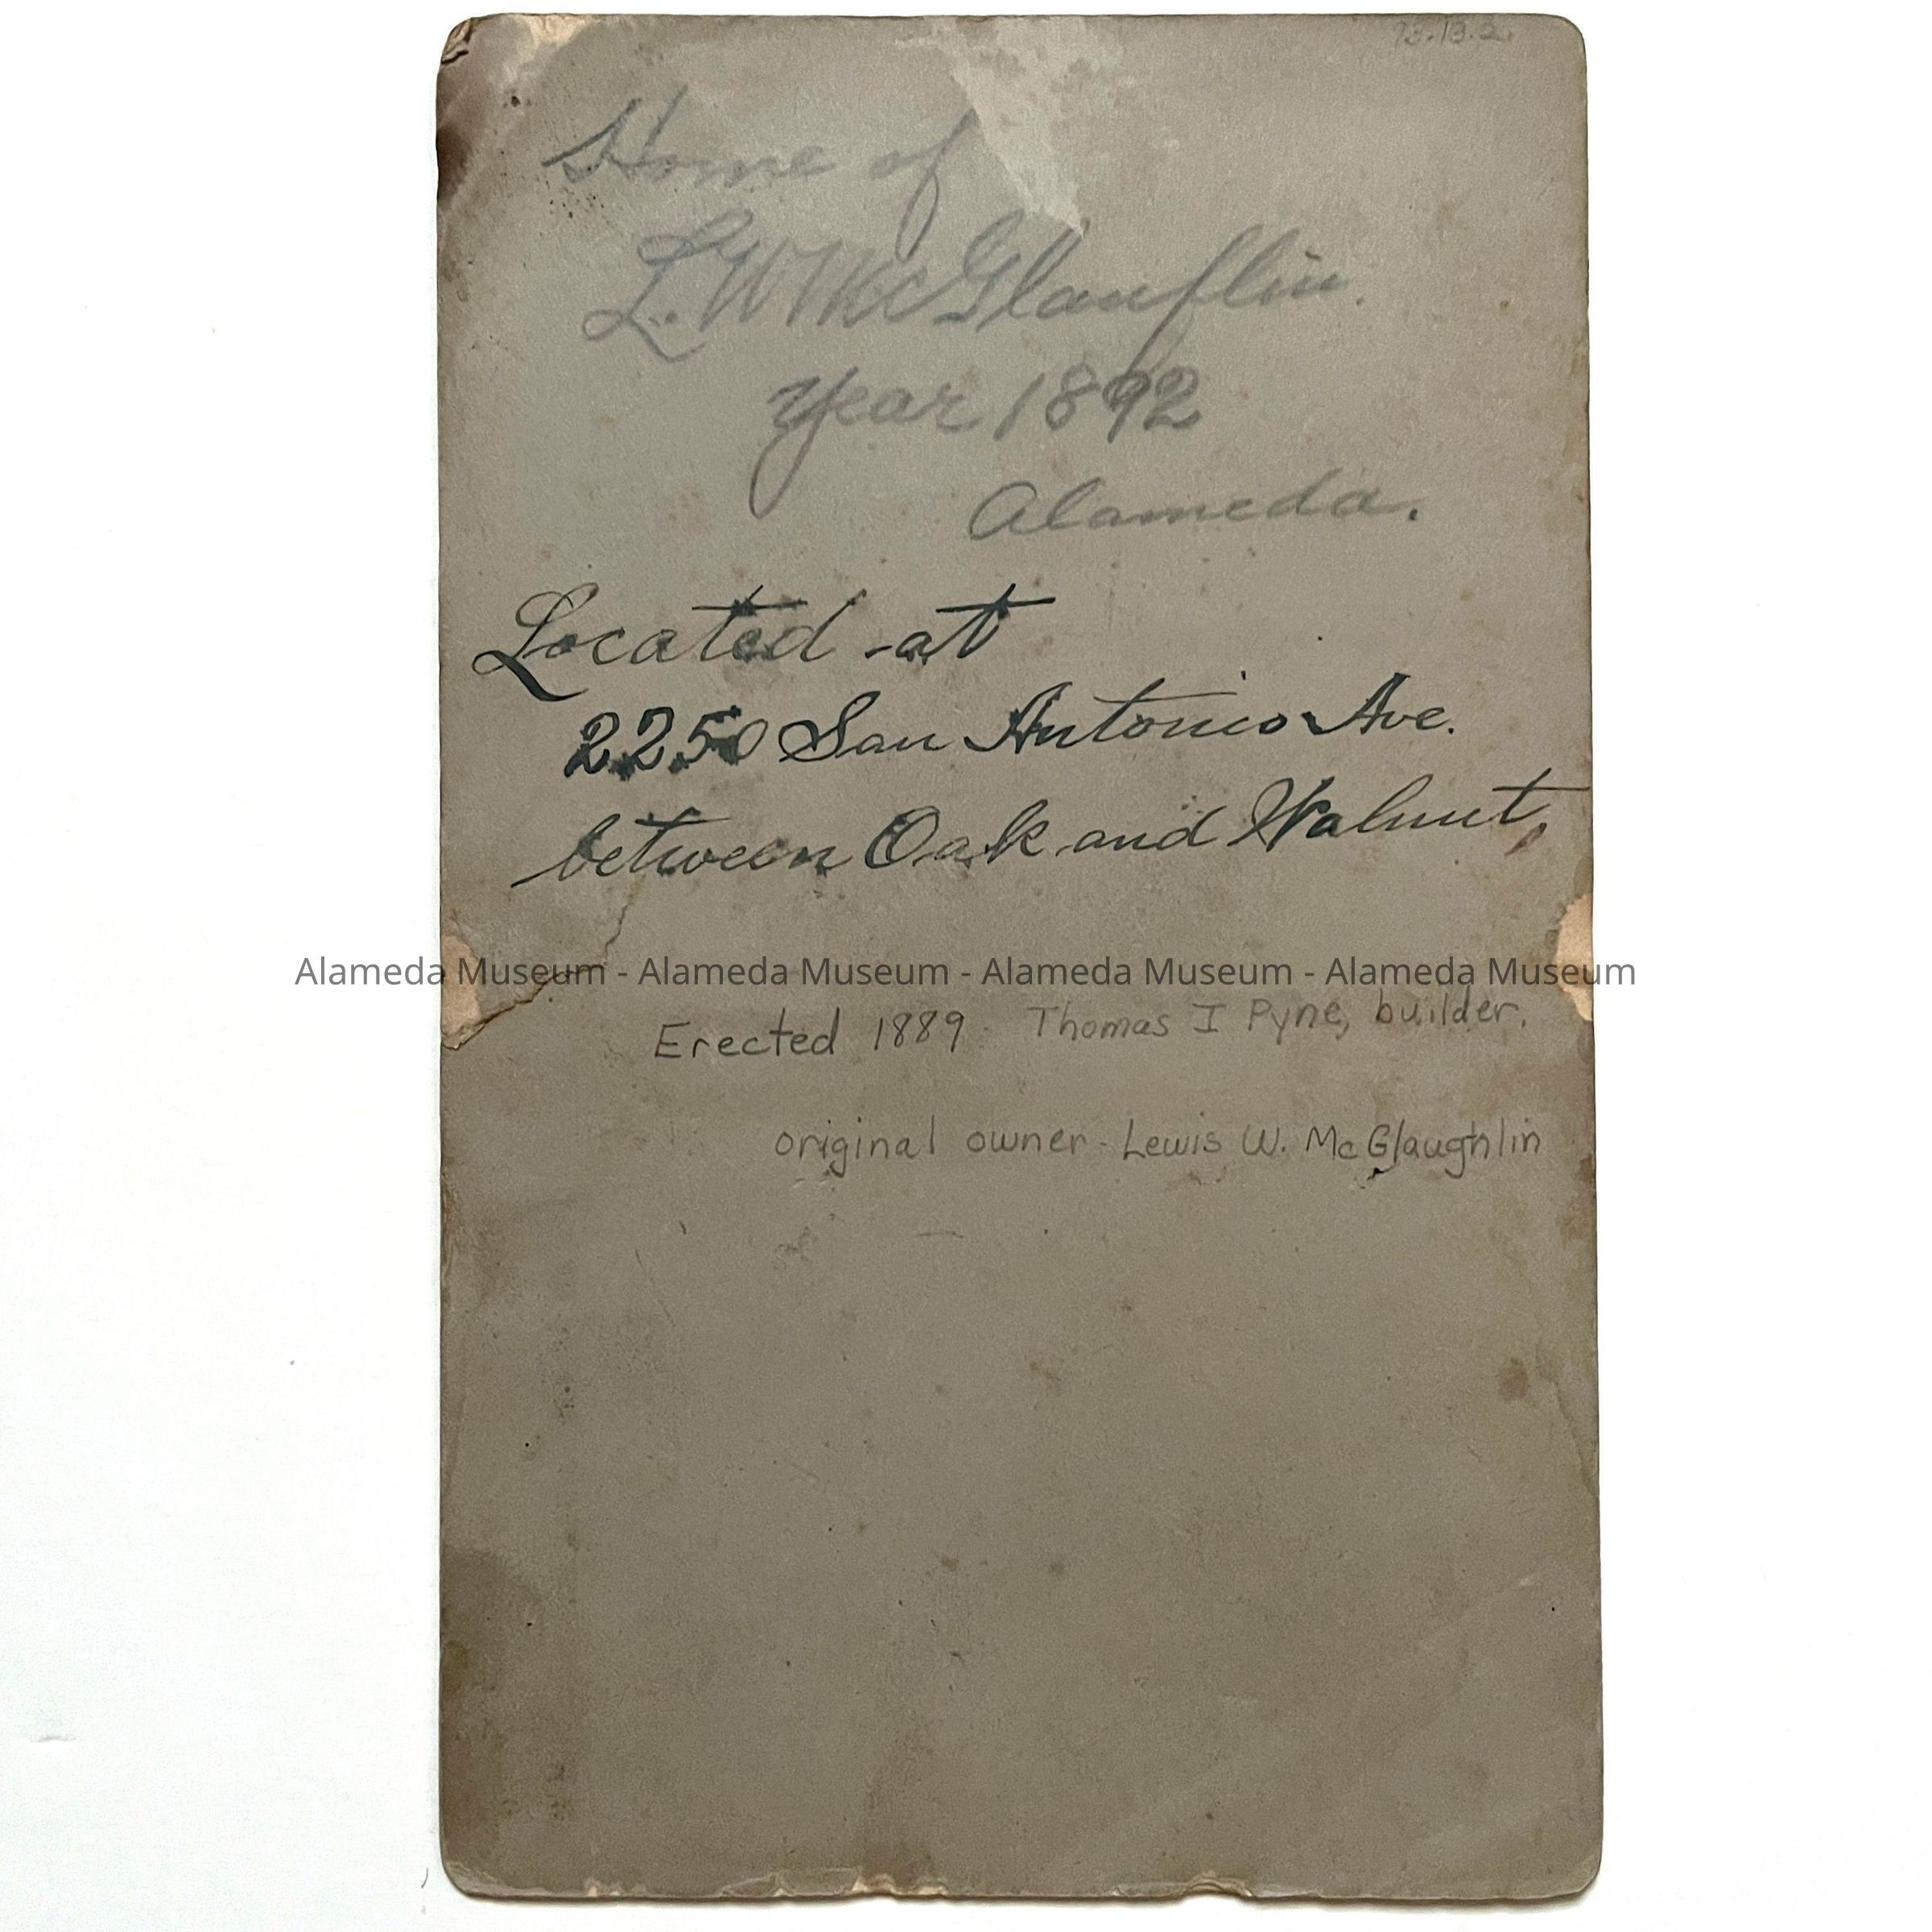 Home of
L. W McGlauflin.
Year 1892
Alameda.
Located at
2250 San Antonio Ave.
between Oak and Walnut,
Alameda Museum - Alameda Museum - Alameda Museum - Alameda Museum
Erected 1889 Thomas I Pyne, builder.
original owner - Lewis W. McGlaughlin